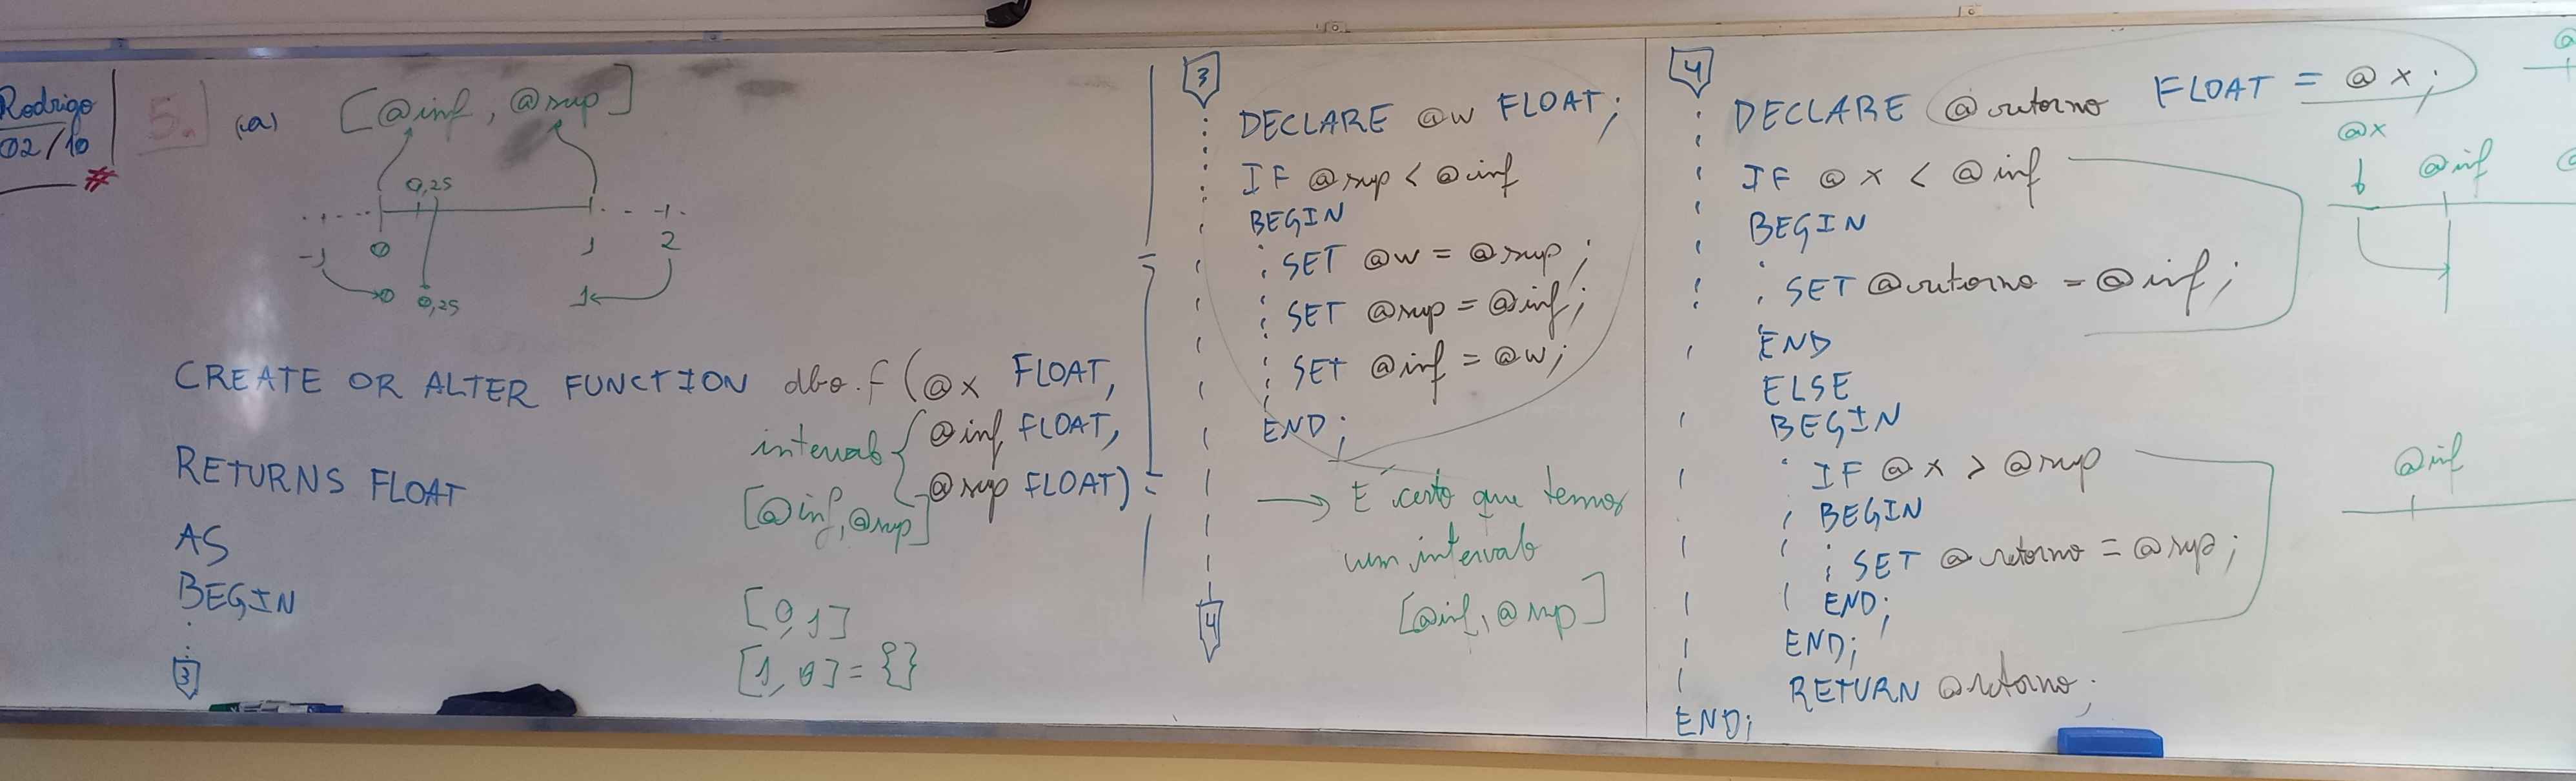 Rodrigo
02/10
#
5. (a) [@inf, @sup]
0,25
-1 0 1 2
0 0,25 1
CREATE OR ALTER FUNCTION dbo.f(@x FLOAT,
intervalo { @inf FLOAT,
[@inf, @sup] @sup FLOAT)
RETURNS FLOAT
AS
BEGIN
3
[0,1]
[1,0] = {}
3
DECLARE @w FLOAT;
IF @sup < @inf
BEGIN
SET @w = @sup;
SET @sup = @inf;
SET @inf = @w;
END;
→ É certo que temos
um intervalo
[@inf, @sup]
4
4
DECLARE @retorno FLOAT = @x;
IF @x < @inf
BEGIN
SET @retorno = @inf;
END
ELSE
BEGIN
IF @x > @sup
BEGIN
SET @retorno = @sup;
END;
END;
RETURN @retorno;
END;
@x
@inf
@inf